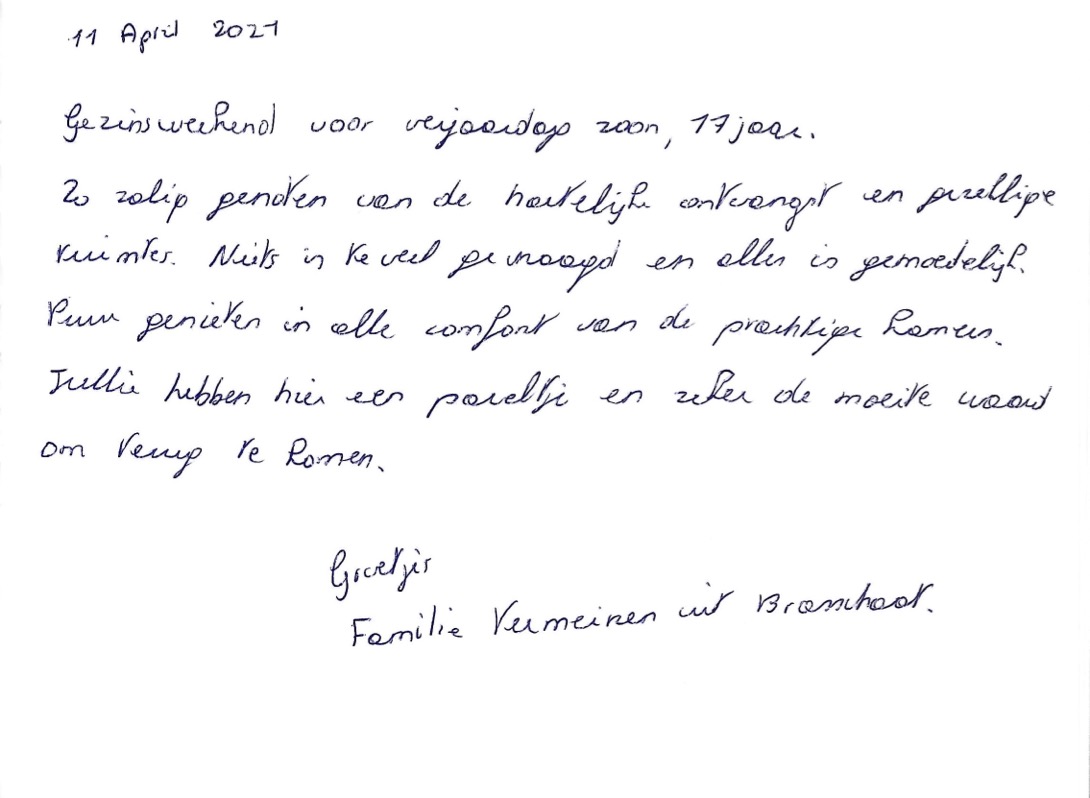 11 April 2021
Gezinsweekend voor verjaardag zoon, 17 jaar.
Zo zalig genoten van de hartelijke ontvangst en gezellige
ruimtes. Niets is te veel gevraagd en alles is gemoedelijk.
Puur genieten in alle comfort van de prachtige kamers.
Jullie hebben hier een pareltje en zeker de moeite waard
om terug te komen.
Groetjes
Familie Vermeiren uit Brasschaat.